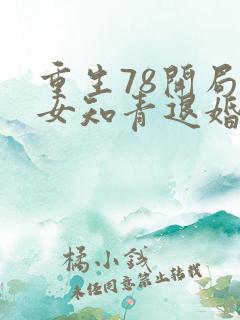 重生78开局
女知青退婚
橘小钱
未经同意禁止转载